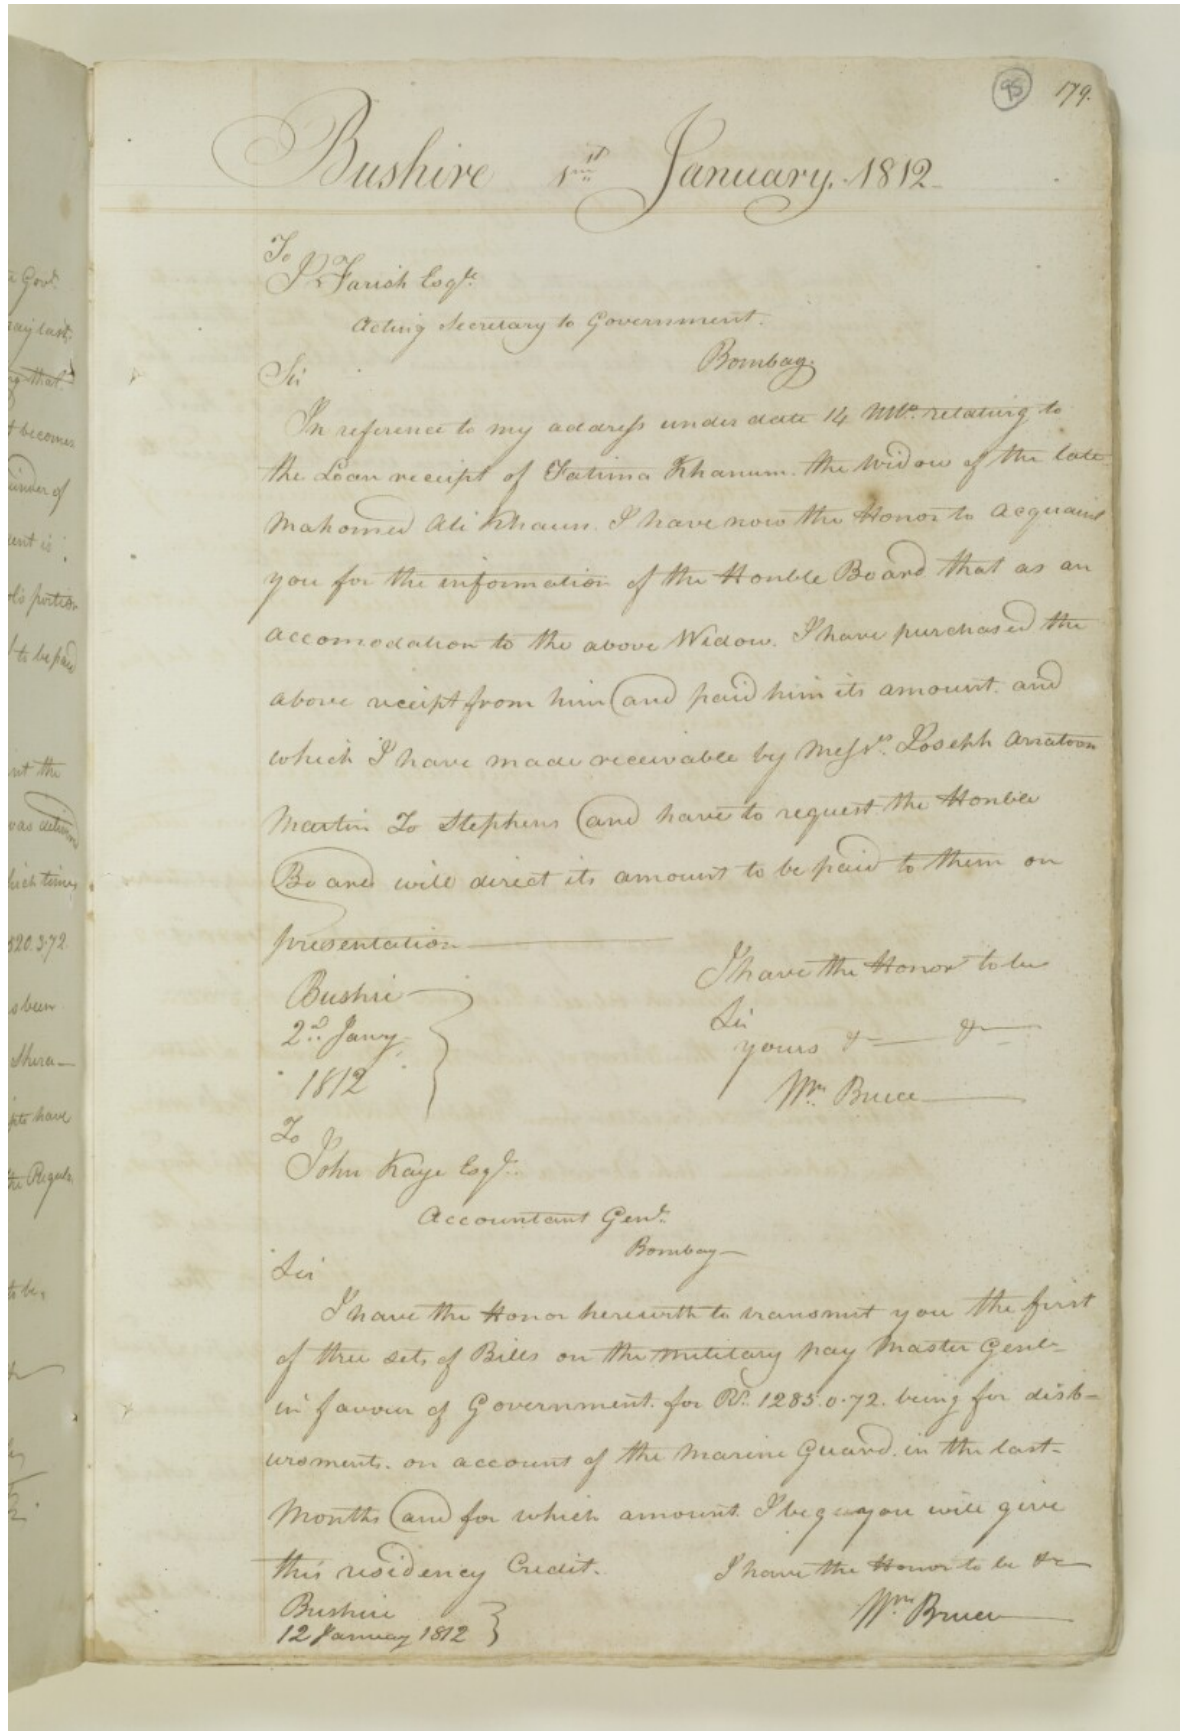 95 179.
Bushire 1st January. 1812
To
J. Farish Esqr.
Acting Secretary to Government.
Bombay.
Sir
In reference to my address under date 14 Ulto. relating to
the Loan receipt of Fatima Khanum the Widow of the late
Mahomed Ali Khaun. I have now the Honor to acquaint
you for the information of the Honble Board that as an
accomodation to the above Widow. I have purchased the
above receipt from him and paid him its amount. and
which I have made receivable by Messrs. Joseph Arratoon
Martin To Stephens and have to request the Honble
Board will direct its amount to be paid to them on
presentation
I have the Honor to be
Sir
yours &-- &--
Wm. Bruce
Bushire
2nd. Jany
1812
To
John Kaye Esqr.
Accountant Genl.
Bombay
Sir
I have the Honor herewith to transmit you the first
of three sets of Bills on the Military pay Master Genl-
in favour of Government. for Rs. 1285.0.72. being for disb-
ursments. on account of the Marine Guard. in the last
Months and for which amount I beg you will give
this residency Credit.
I have the Honor to be &c
Wm Bruce
Bushire
12 January 1812